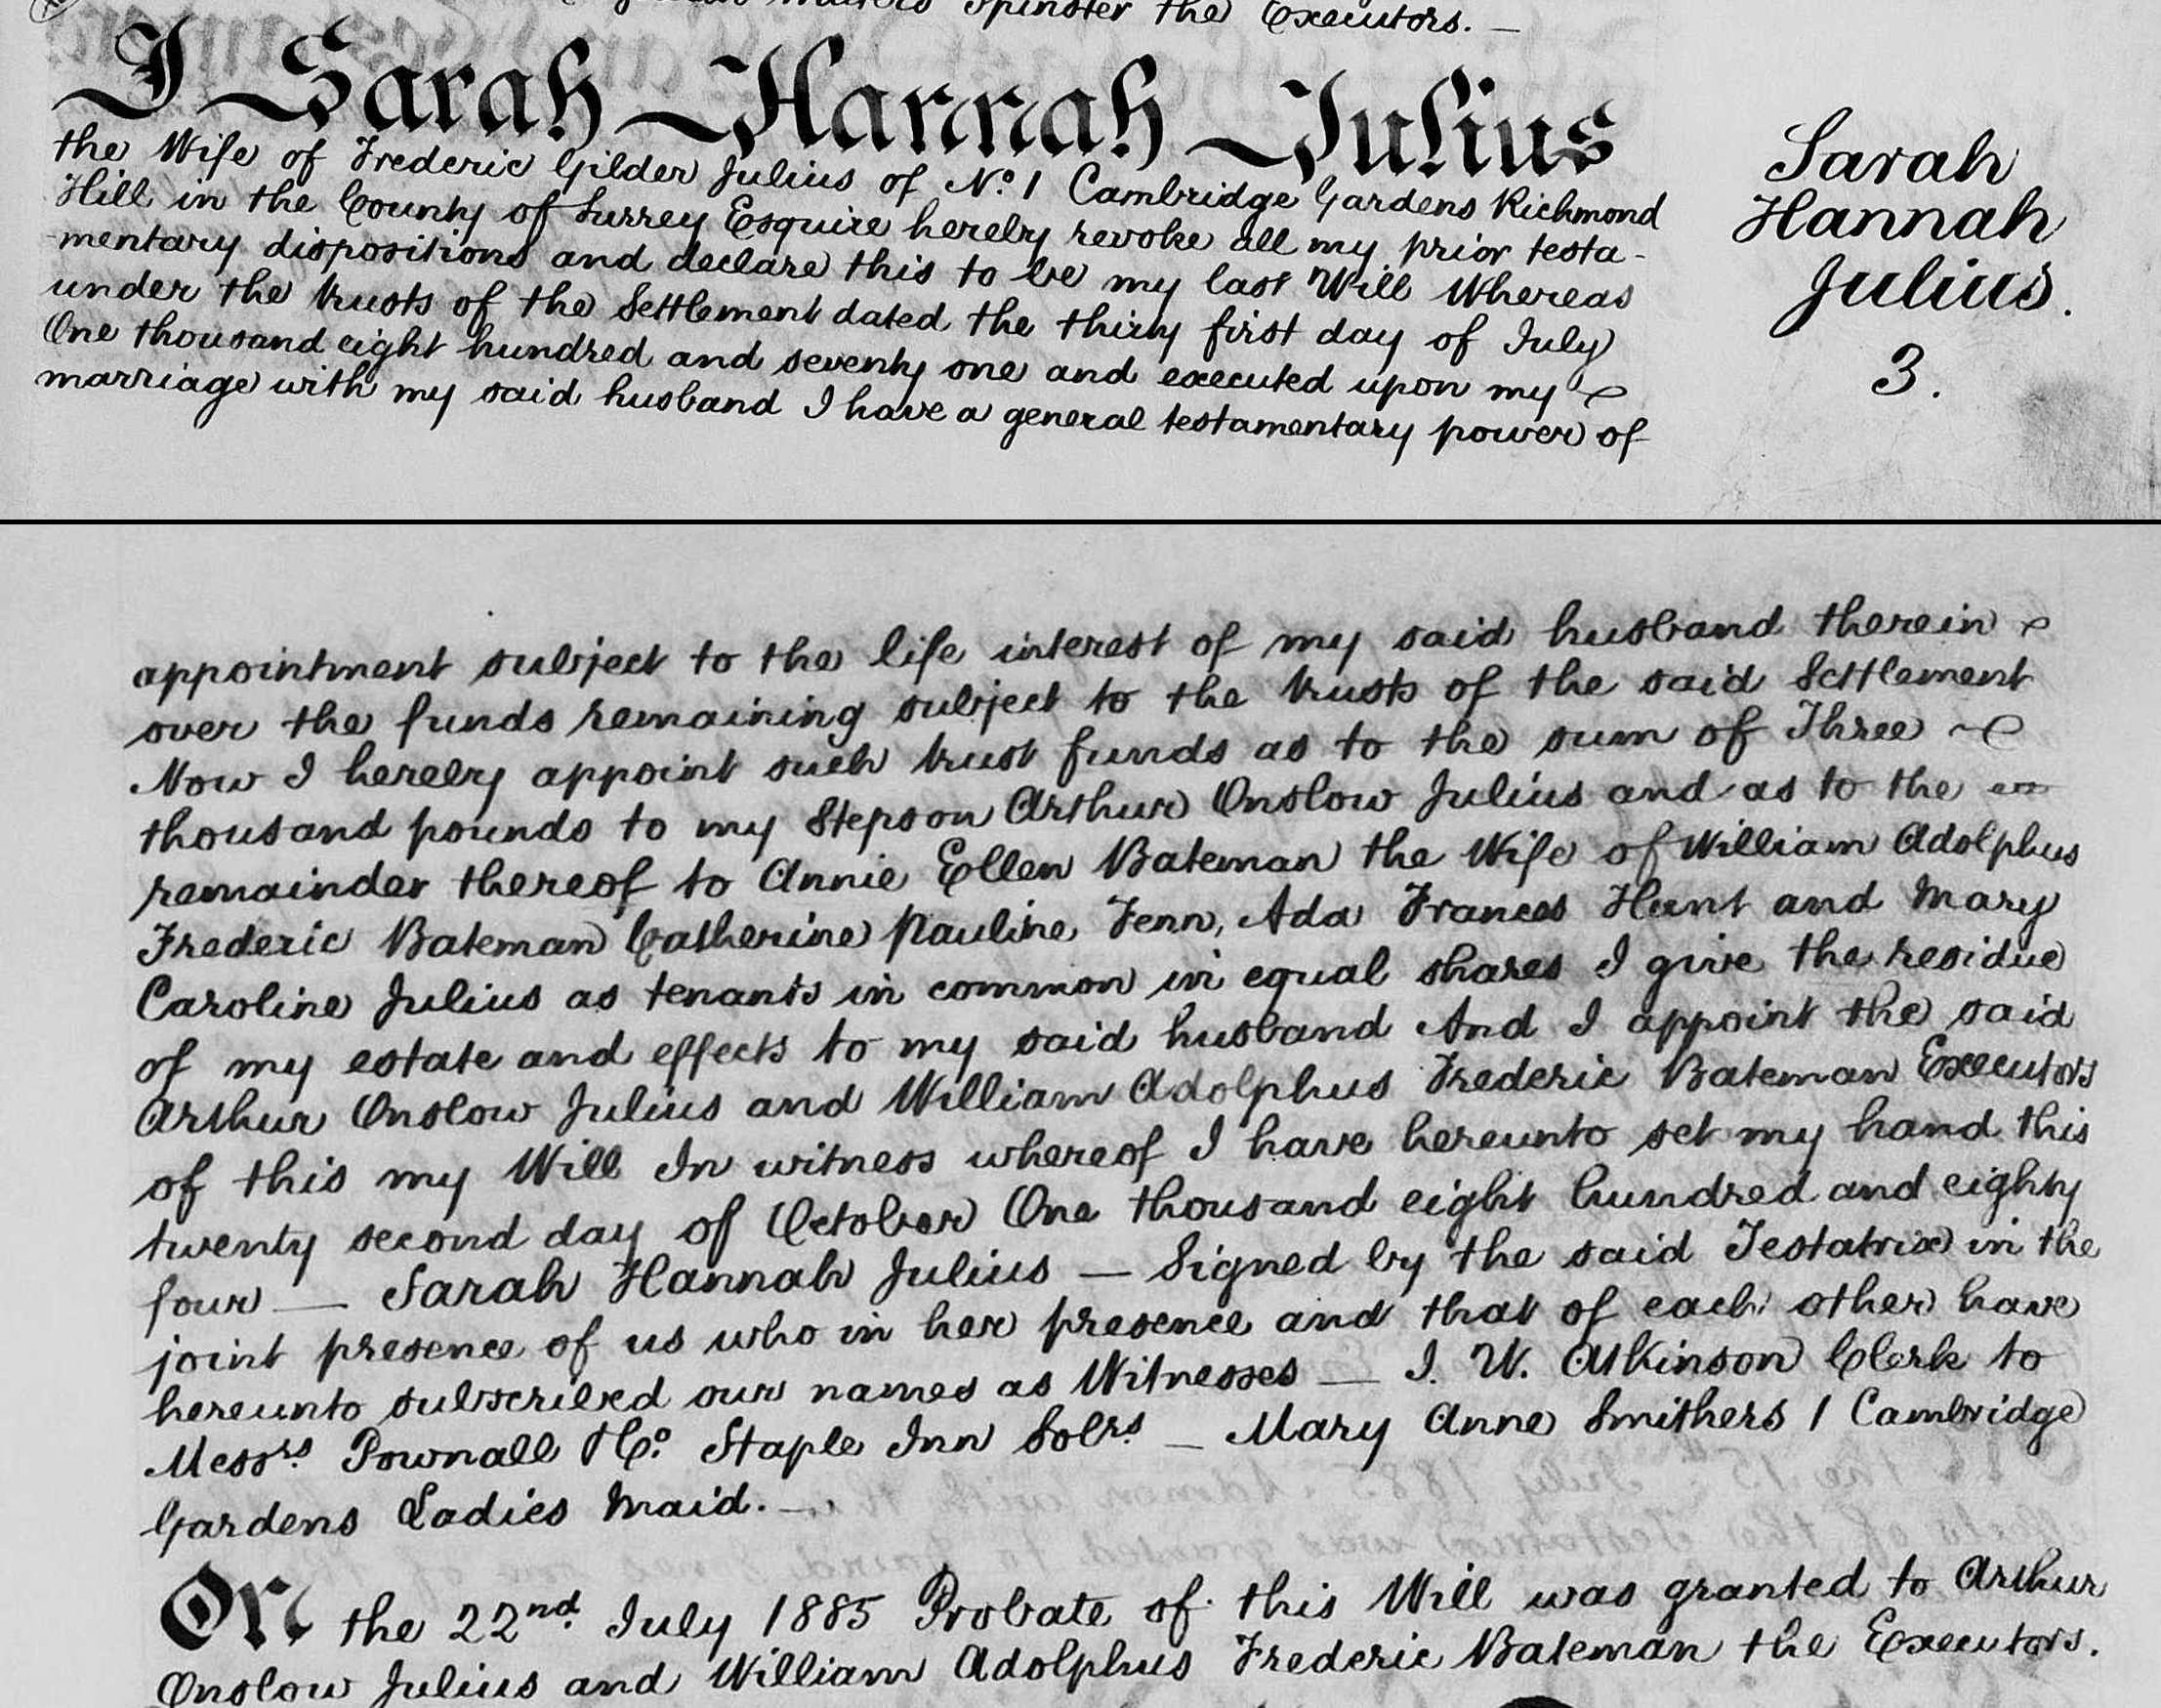 Spinster the Executors. —
I Sarah Hannah Julius
the Wife of Frederic Gilder Julius of No. 1 Cambridge Gardens Richmond
Hill in the County of Surrey Esquire hereby revoke all my prior testa-
mentary dispositions and declare this to be my last Will Whereas
under the trusts of the Settlement dated the thirty first day of July
One thousand eight hundred and seventy one and executed upon my
marriage with my said husband I have a general testamentary power of
Sarah
Hannah
Julius.
3.
appointment subject to the life interest of my said husband therein
over the funds remaining subject to the trusts of the said Settlement
Now I hereby appoint such trust funds as to the sum of Three
thousand pounds to my Stepson Arthur Onslow Julius and as to the
remainder thereof to Annie Ellen Bateman the Wife of William Adolphus
Frederic Bateman Catherine Pauline Fenn, Ada Frances Hunt and Mary
Caroline Julius as tenants in common in equal shares I give the residue
of my estate and effects to my said husband And I appoint the said
Arthur Onslow Julius and William Adolphus Frederic Bateman Executors
of this my Will In witness whereof I have hereunto set my hand this
twenty second day of October One thousand eight hundred and eighty
four — Sarah Hannah Julius — Signed by the said Testatrix in the
joint presence of us who in her presence and that of each other have
hereunto subscribed our names as Witnesses — J. W. Atkinson Clerk to
Messrs. Pownall & Co. Staple Inn Solrs — Mary Anne Smithers 1 Cambridge
Gardens Ladies Maid. —
On the 22nd July 1885 Probate of this Will was granted to Arthur
Onslow Julius and William Adolphus Frederic Bateman the Executors.